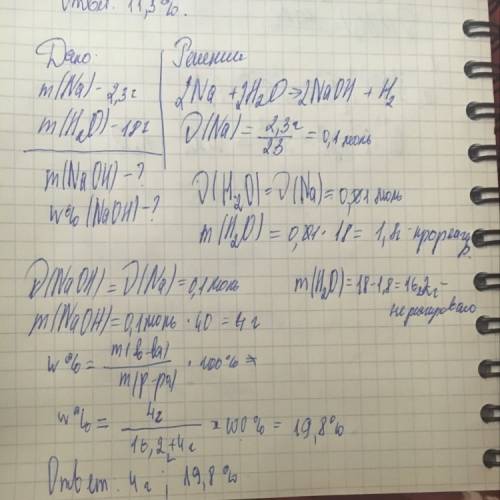 Ответ. 11,3%.
Дано:
m(Na) - 2,3г
m(H₂O) - 18г
m(NaOH) - ?
w% (NaOH) - ?
Решение
2Na + 2H₂O → 2NaOH + H₂
ν(Na) = 2,3г / 23 = 0,1 моль
ν(H₂O) = ν(Na) = 0,1 моль
m(H₂O) = 0,1 · 18 = 1,8г - прореагир.
ν(NaOH) = ν(Na) = 0,1 моль
m(NaOH) = 0,1 моль · 40 = 4г
m(H₂O) = 18 - 1,8 = 16,2г -
не реагировало
w% = m(в-ва) / m(р-ра) · 100% =
w% = 4г / 16,2 + 4г × 100% = 19,8%
Ответ. 4г ; 19,8%